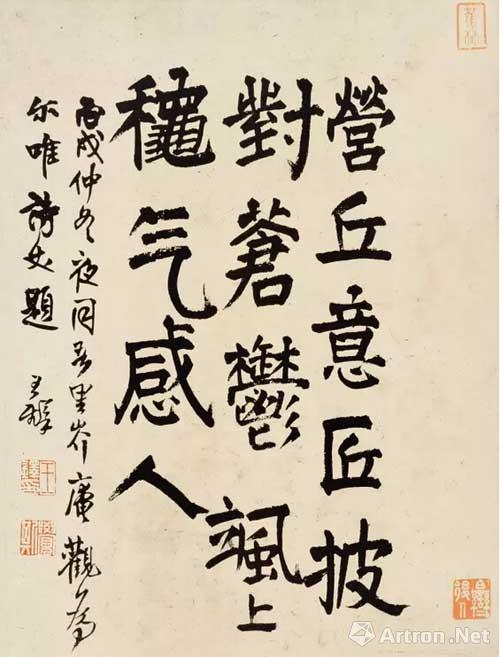 營丘意匠披
對蒼鬱颯上
穐气感人
丙戌仲冬夜同吾里岑庵觀為
尔唯詩丈題 王鐸
Artron.Net